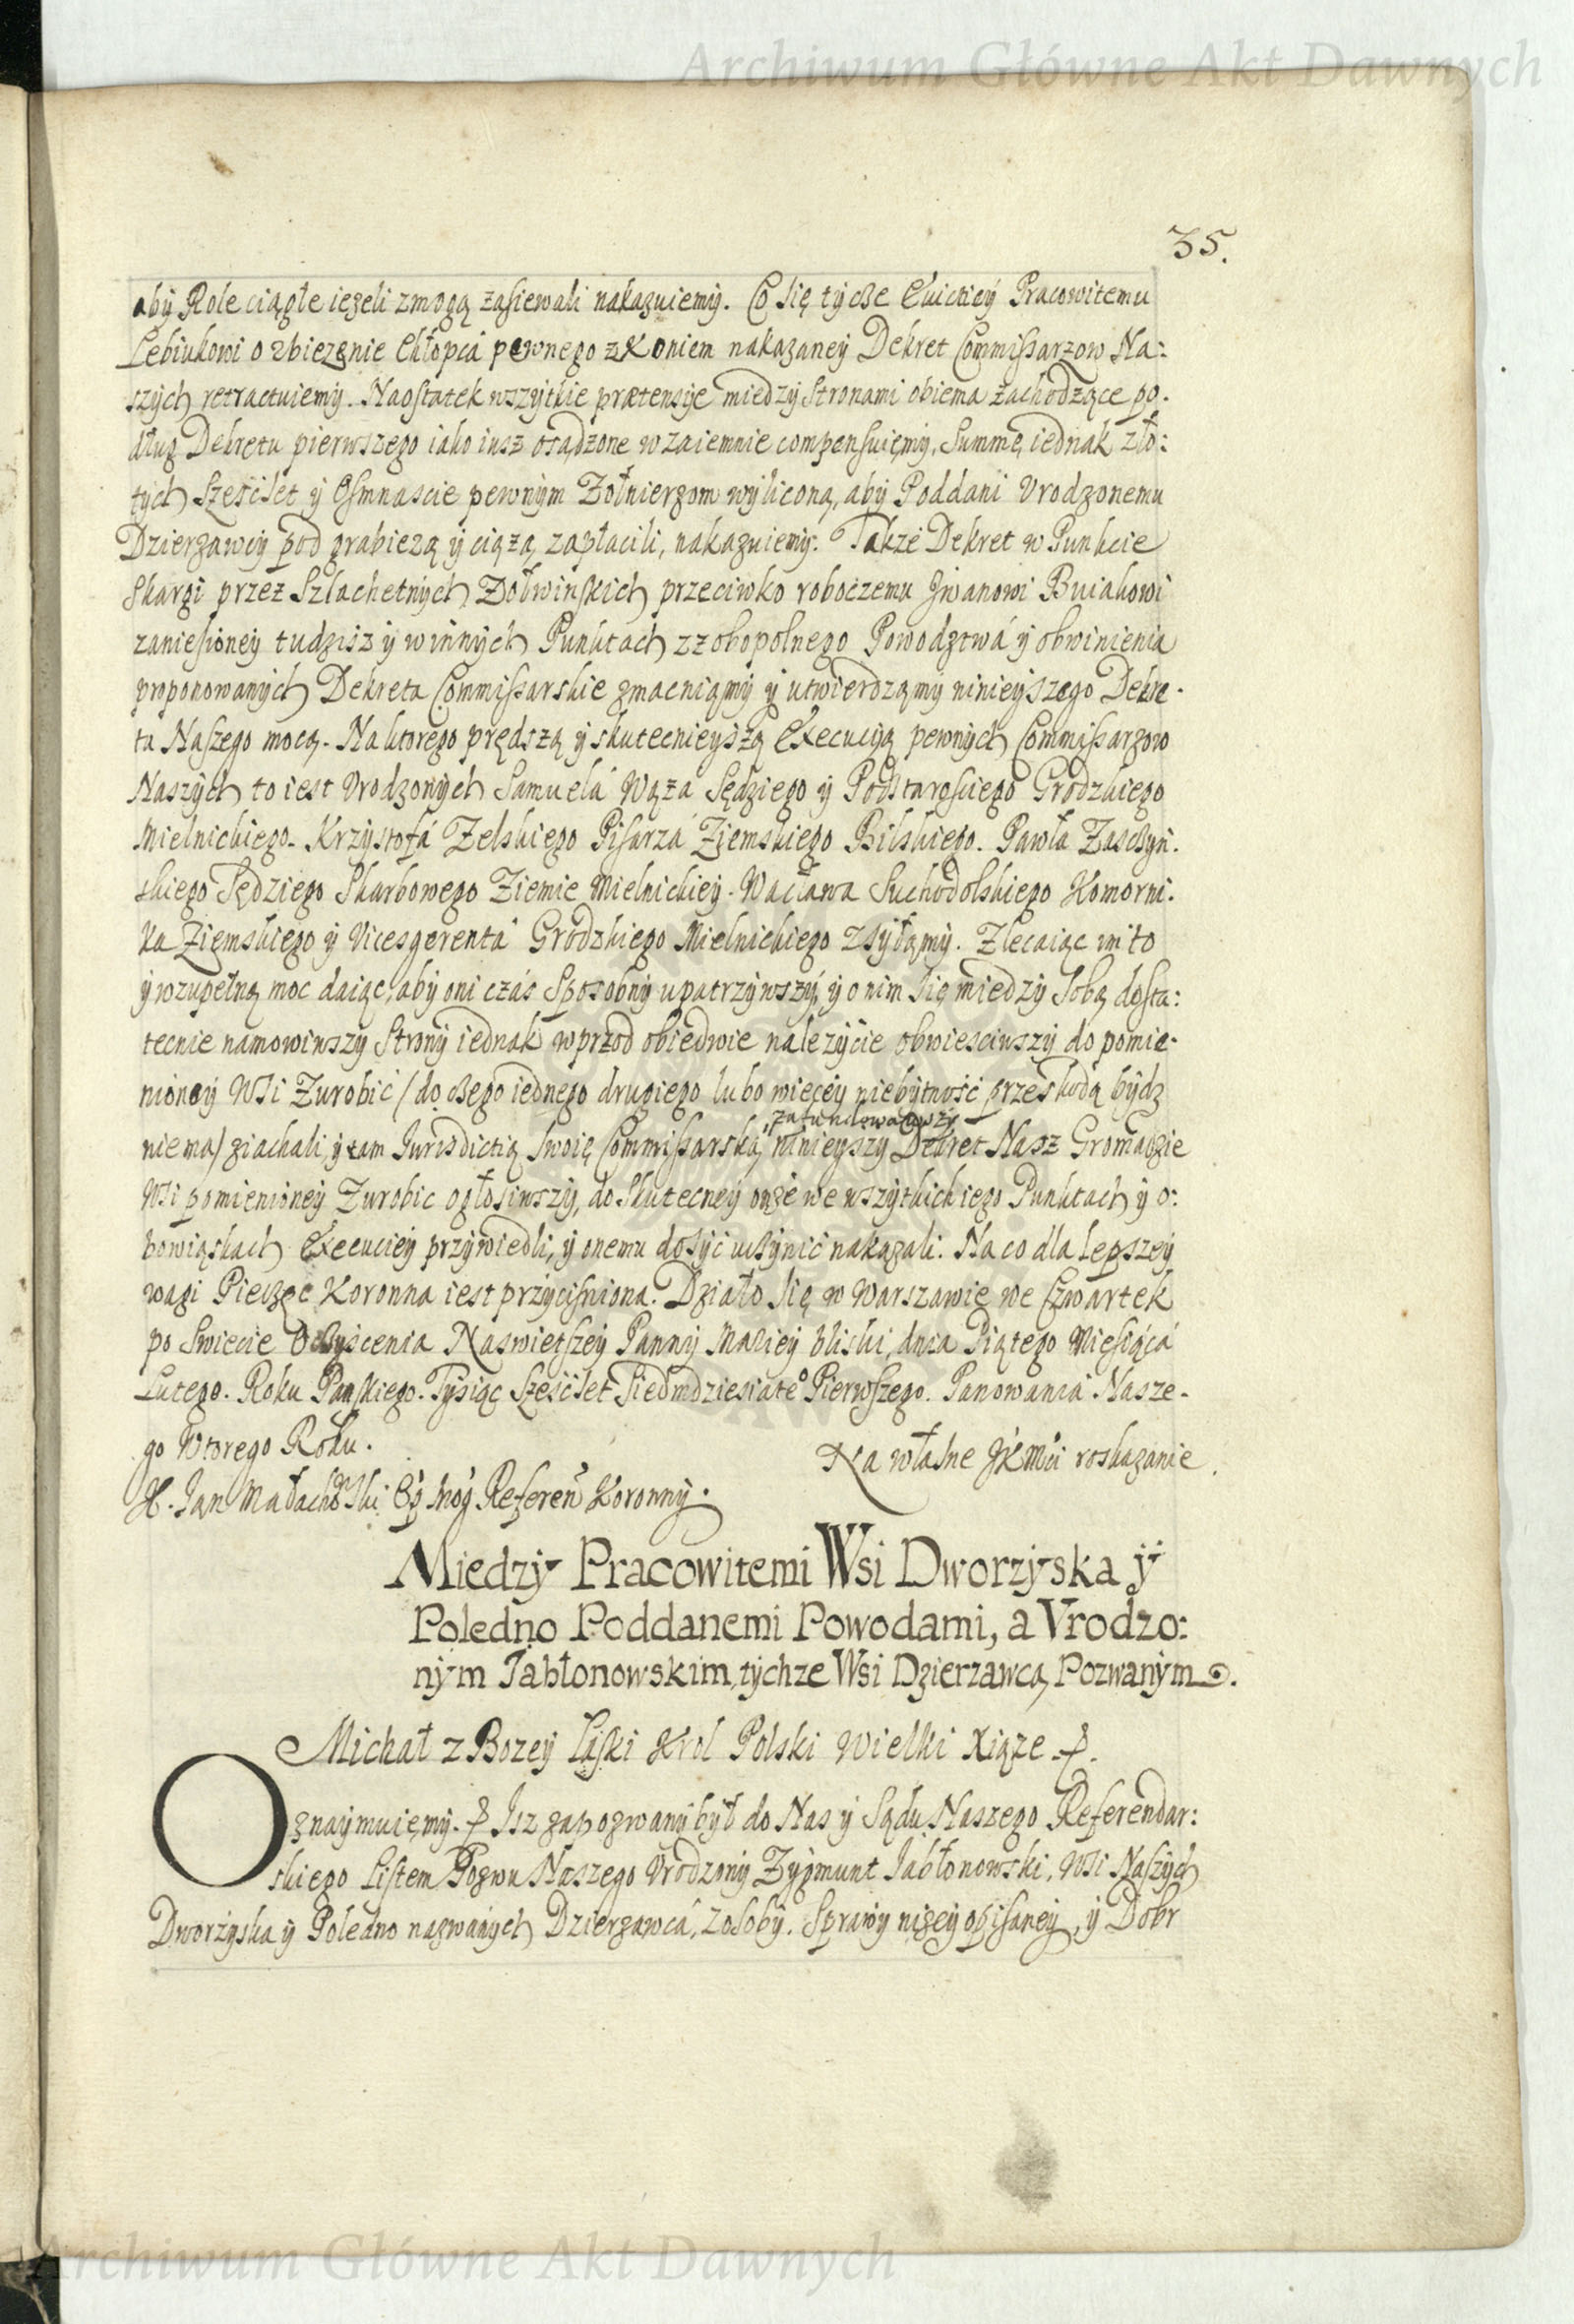 Archiwum Główne Akt Dawnych
35.
aby Role ciągłe ieżeli zmogą zasiewali nakazuiemy. Co się tycze Euictiey Pracowitemu
Lebiukowi o zbieżenie Chłopca pewnego z Koniem nakazaney Dekret Commissarzow Na:
szych retractuiemy. Naostatek wszytkie prætensye miedzy Stronami obiema zachodzące po.
dług Dekretu pierwszego iako iusz osądzone wzaiemnie compensuięmy, Summę iednak zło:
tych Sześćset y Osmnascie pewnym Zołnierzom wyliconą, aby Poddani Vrodzonemu
Dzierzawcy pod grabieżą y ciążą zapłacili, nakazuiemy. Także Dekret w Punkcie
Skargi przez Szlachetnych Zołwinskich przeciwko roboczemu Jwanowi Buiakowi
zaniesioney tudzisz y winnych Punktach zzobopolnego Powodztwá y obwinienia
proponowanych Dekreta Commissarskie zmacniąmy y utwierdząmy ninieyszego Dekre.
tu Naszego mocą. Na ktorego prędszą y skutecnieyszą Execucyą pewnych Commissarzow
Naszych to iest Vrodzonych Samuelá Wąża Sędziego y Podstarosciego Grodzkiego
Mielnickiego. Krzysztofá Zelskiego Pisarzá Ziemskiego Bilskiego. Pawła Zasczyń.
skiego Sędziego Skarbowego Ziemie Mielnickiey. Wacława Suchodolskiego Komorni.
ka Ziemskiego y Vicesgerentá Grodzkiego Mielnickiego zsyłąmy. Zlecaiąc im to
y wzupełną moc daiąc, aby oni czás Sposobny upatrzywszy, y o nim się miedzy Sobą dosta:
tecnie namowiwszy Strony iednak wprzod obiedwie należycie obwiesciwszy do pomie.
nioney Wsi Zurobic (do czego iednego drugiego lubo więcey niebytność przeskodą bydz
zafundowawszy
nie ma) ziachali, y tam Jurisdictią Swoię Commissarską, ninieyszy Dekret Nasz Gromadzie
Wsi pomienioney Zurobic ogłosiwszy, do Skutecney onże we wszytkich iego Punktach y o:
bowiąskach Execuciey przywiedli, y onemu dosyć uczynić nakazali. Na co dla lepszey
wagi Pieczęc Koronna iest przyciśniona. Działo się w Warszawie we Czwartek
po Swiecie Oczyścenia Naswietszey Panny Mariey bliski, dnia Piątego Miesiącá
Lutego. Roku Pańskiego. Tysiąc Sześćset Siedmdziesiate° Pierwszego. Panowania Nasze.
go Wtorego Roku.
Na własne JKMci roskazanie.
X. Jan Małachowski Ep Referen Koronny.
Miedzy Pracowitemi Wsi Dworzyska y
Poledno Poddanemi Powodami, a Vrodzo:
nym Jabłonowskim, tychze Wsi Dzierzawcą, Pozwanym.
Michał z Bozey Łaski Krol Polski Wielki Xiąze &.
Oznaymuięmy. & Jsz zapozwany był do Nas y Sądu Naszego Referendar:
skiego Listem Pozwu Naszego Vrodzony Zygmunt Jabłonowski, Wsi Naszych
Dworzyska y Poledno nazwanych Dzierzawcá, z osoby. Sprawy niżey opisaney, y Dobr
Archiwum Główne Akt Dawnych